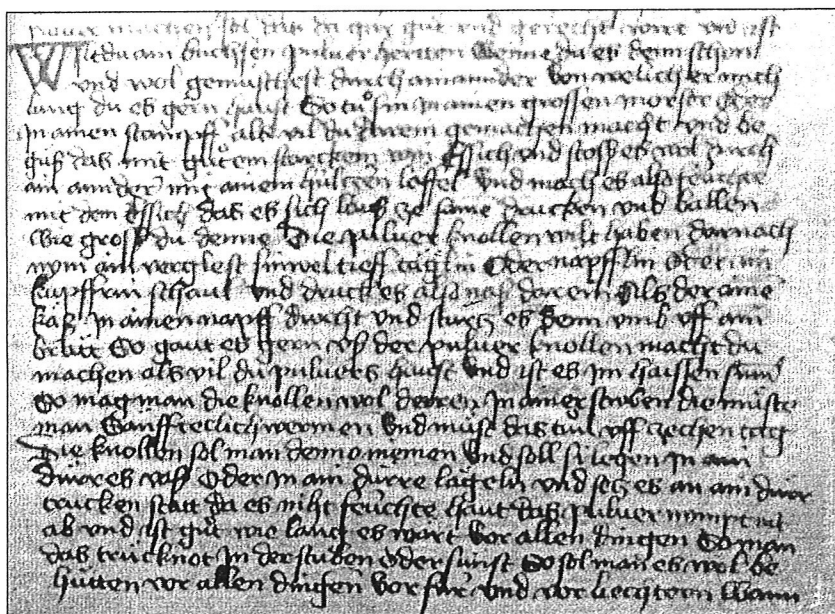 pulver machen sol das du gar gut und gerecht wirt und ist
Wiltu ain buchsen pulver hertten Wenne du es denn schon
und wol gemischest durch ain ander von welicher mach
lang du es gern haust So tu sin in ainen grossen morser oder
In ainen stampff als vil du Inrem gemachen macht und be
güß das mit gütem starckem win Essich und stoß es wol durch
ain ander mit ainem hültzen leffel und mach es also feücht
mit dem Essich das es sich lauß ze same drucken und ballen
Wie groß du denne die pulver knollen wilt haben darnach
nym ain verglest sinwel tieff täglin Oder napfflin Oder im
kupffrin schaul und druck es also naß darein Als der aine
käß In ainen napff druckt und stürtz es denn umb uff ain
brätt So gaut es gern uß der pulver knollen macht du
machen als vil du pulvers haust Und ist es Im haissen sum
So mag man die knollen wol derren In ainer stuben die müste
man Sänffteclich wermen Und müst das tün uff zechen tag
Die knollen sol man denn nemen Und soll si legen In ain
dürres vaß Oder In ain dürre lägeln und setz es an ain dürr
trucken statt da es niht feüchte haut das pulver nimpt nit
ab und ist güt wie lang es wärt Vor allen dingen So man
das trücknot In der stuben Oder sünst So sol man es wol be
hütten vor allen dingen Vor für und vor liechtern Wann